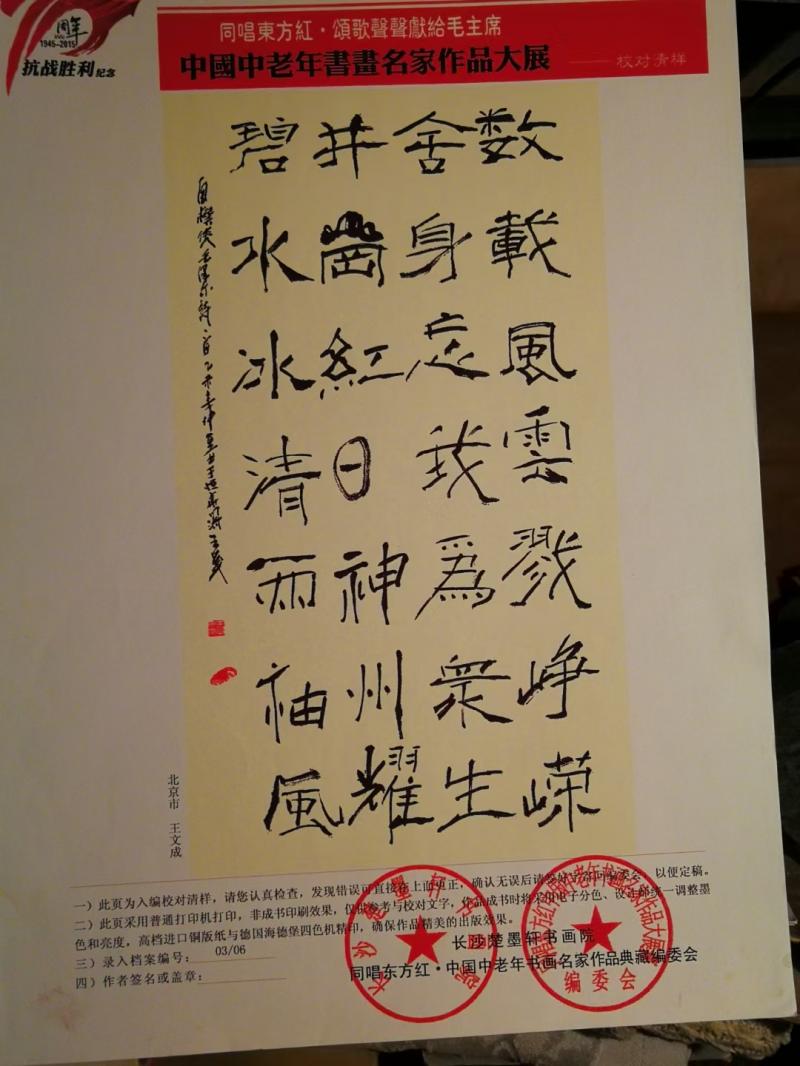 周年
1945-2015
抗战胜利纪念
同唱東方紅·頌歌聲聲獻給毛主席
中國中老年書畫名家作品大展
校对清样
数載風雲戮崢嶸
舍身忘我爲衆生
井崗紅日神州耀
碧水冰清兩袖風
北京市 王文成
一）此页为入编校对清样，请您认真检查，发现错误可直接在上面更正，确认无误后请签好字寄回编委会，以便定稿。
二）此页采用普通打印机打印，非成书印刷效果，仅供参考与校对文字，作品成书时将采用电子分色、设计师统一调整墨
色和亮度，高档进口铜版纸与德国海德堡四色机精印，确保作品精美的出版效果。
三）录入档案编号：03/06
四）作者签名或盖章：
长沙楚墨轩书画院
同唱东方红·中国中老年书画名家作品典藏编委会
编委会